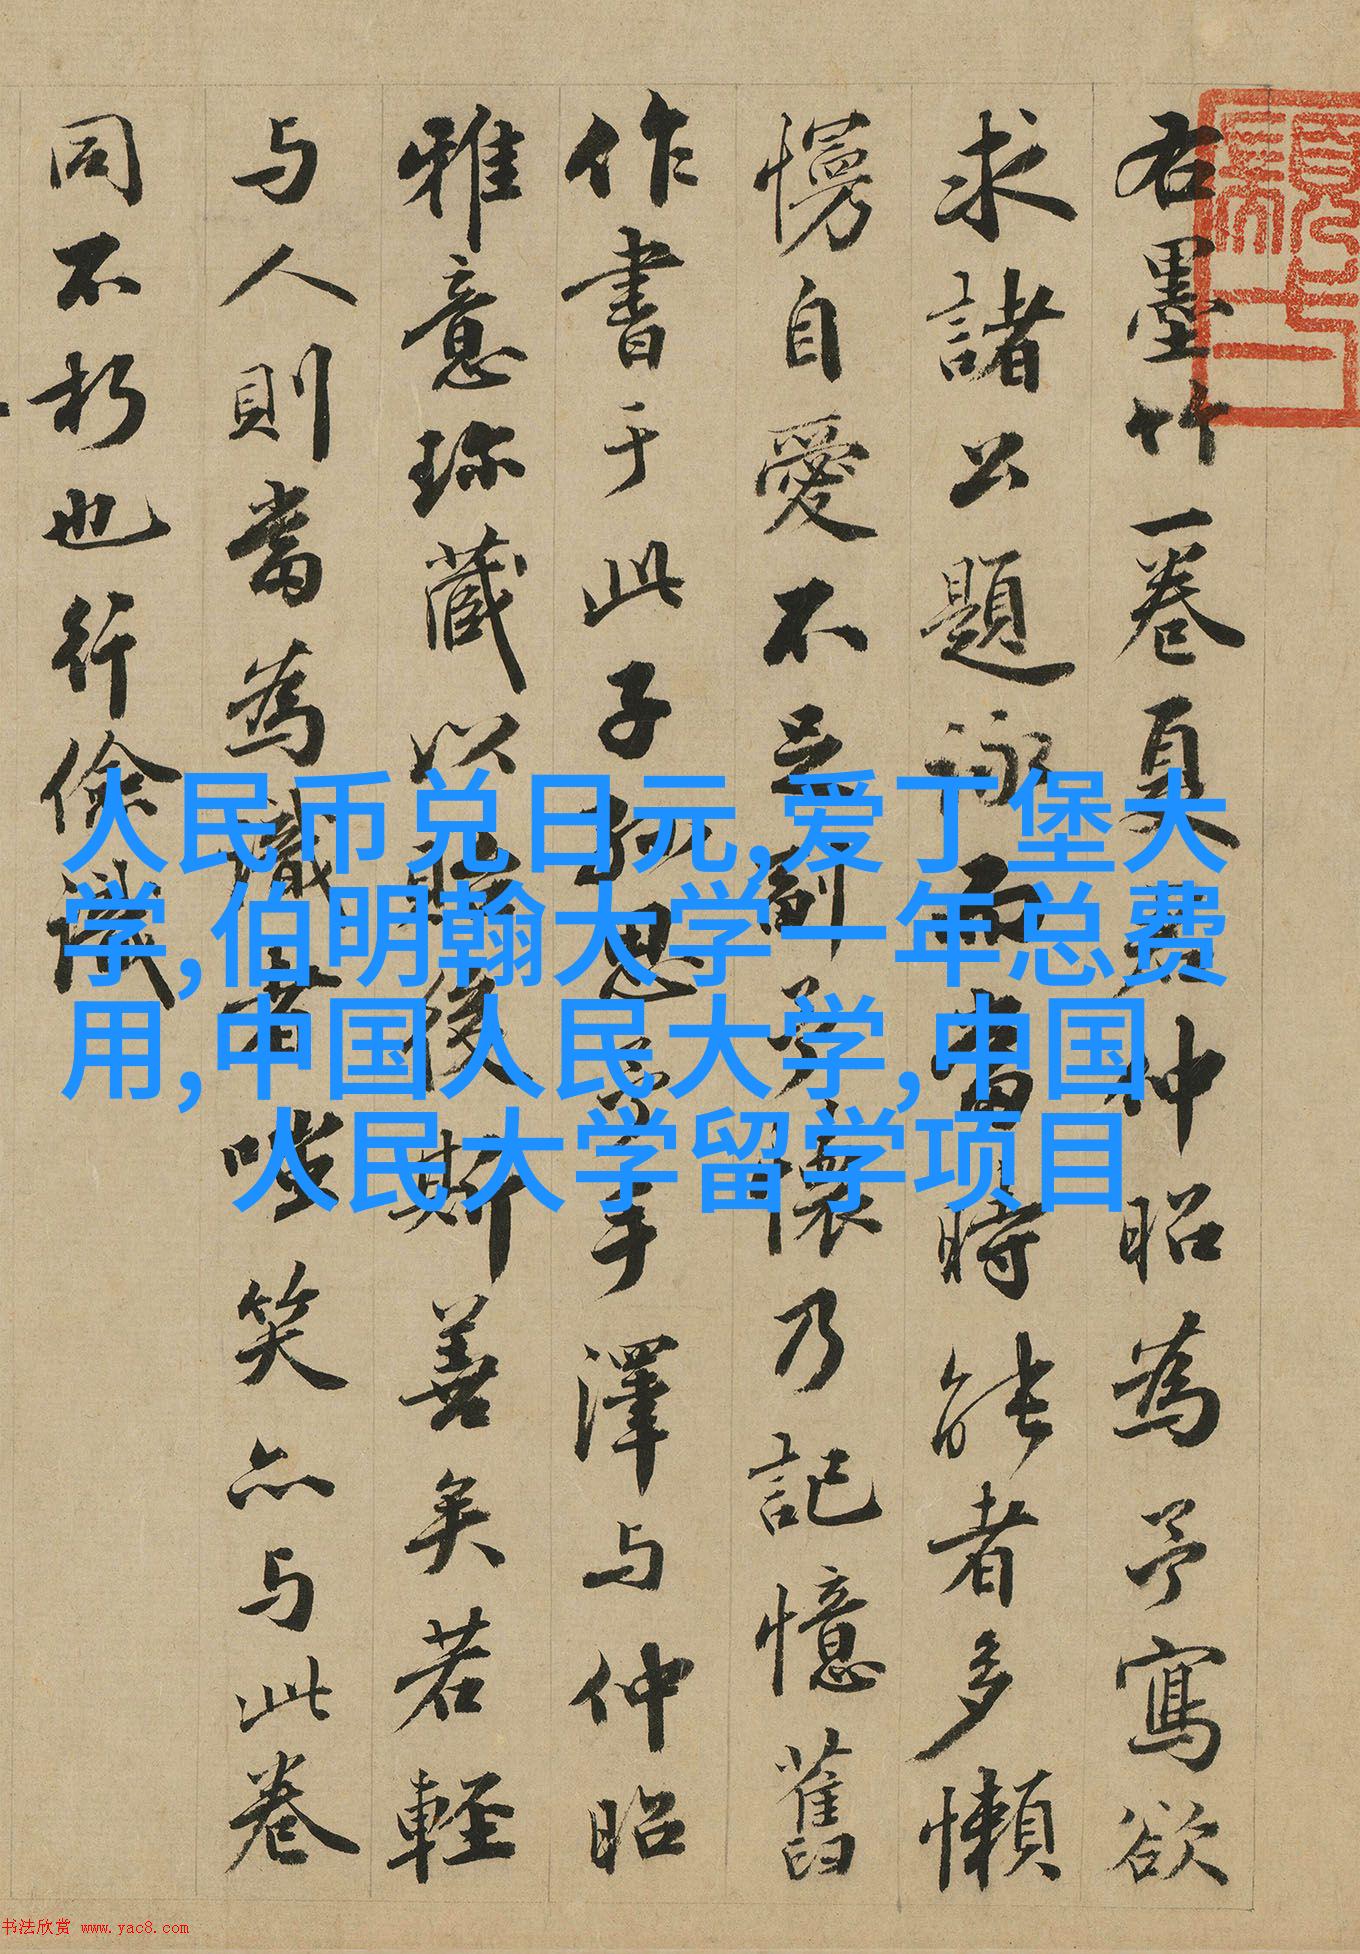 右墨竹一卷夏君仲昭為予寫欲
求諸公題詠而當時能者多懶
慢自愛不足副予懷乃記憶舊
作書于此子孫思予手澤与仲昭
雅意珍藏以貽後斯善矣若輕
与人則當為識者嗤笑亦与此卷
同不朽也行儉識
人民币兑日元,爱丁堡大
学,伯明翰大学一年总费
用,中国人民大学,中国
人民大学留学项目
书法欣赏 www.yac8.com